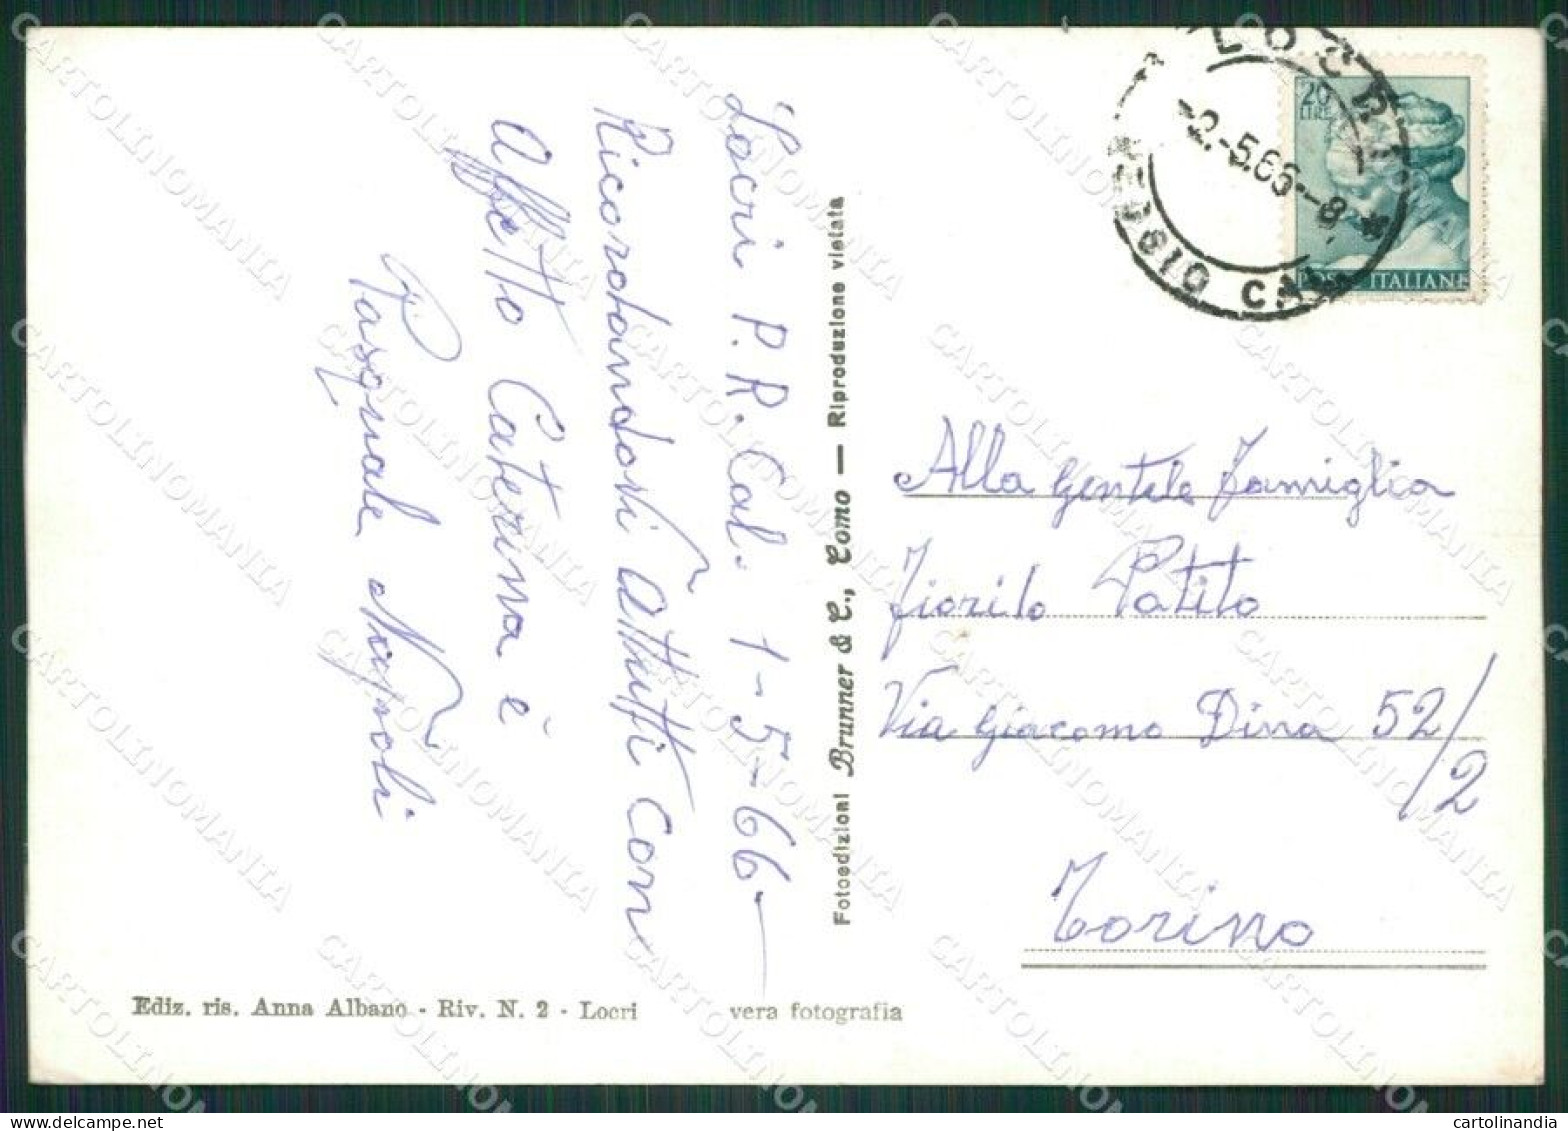 Locri P. R. Cal. 1-5-66
Ricorotandovi Attutti Con
Affetto Caterina è
Pasquale Napoli
Fotoedizioni Brunner & C., Como — Riproduzione vietata
LOCRI
-2.-5.66--8
REGGIO CAL
20
LIRE
POSTE ITALIANE
Alla Gentile Famiglia
Fiorilo Patito
Via Giacomo Dina 52/2
Torino
Ediz. ris. Anna Albano - Riv. N. 2 - Locri
vera fotografia
CARTOLINOMANIA
cartolinandia